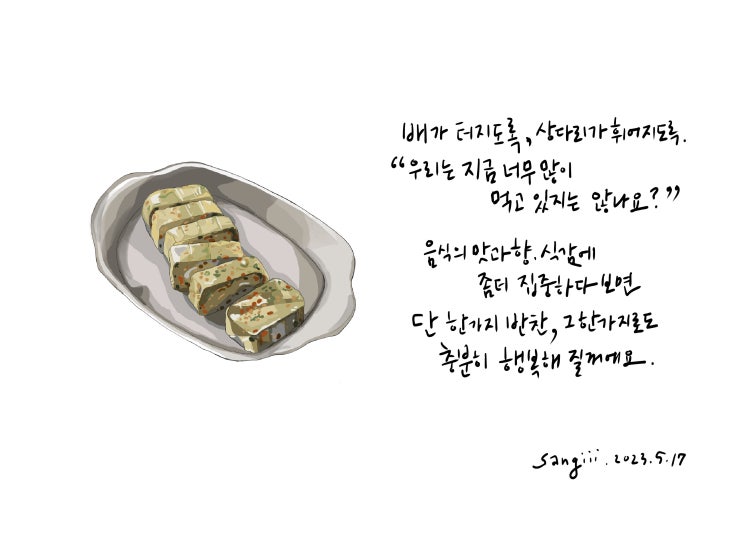 배가 터지도록, 상다리가 휘어지도록.
“우리는 지금 너무 많이
먹고 있지는 않나요?”
음식의 맛과 향. 식감에
좀더 집중하다 보면
단 한가지 반찬, 그 한가지로도
충분히 행복해 질꺼에요.
Sangiii. 2023.5.17